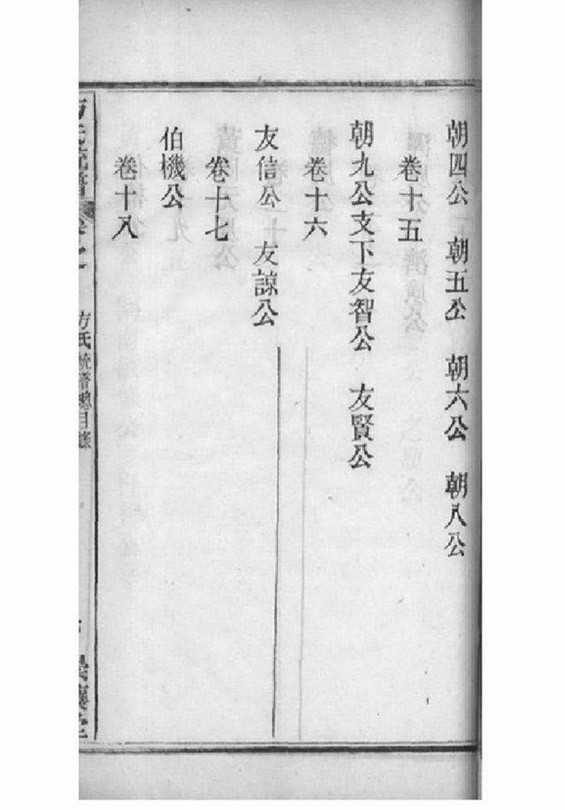 朝四公　朝五公　朝六公　朝八公
卷十五
朝九公支下友智公　友賢公
卷十六
友信公　友諒公
卷十七
伯機公
卷十八
方氏統譜總目錄